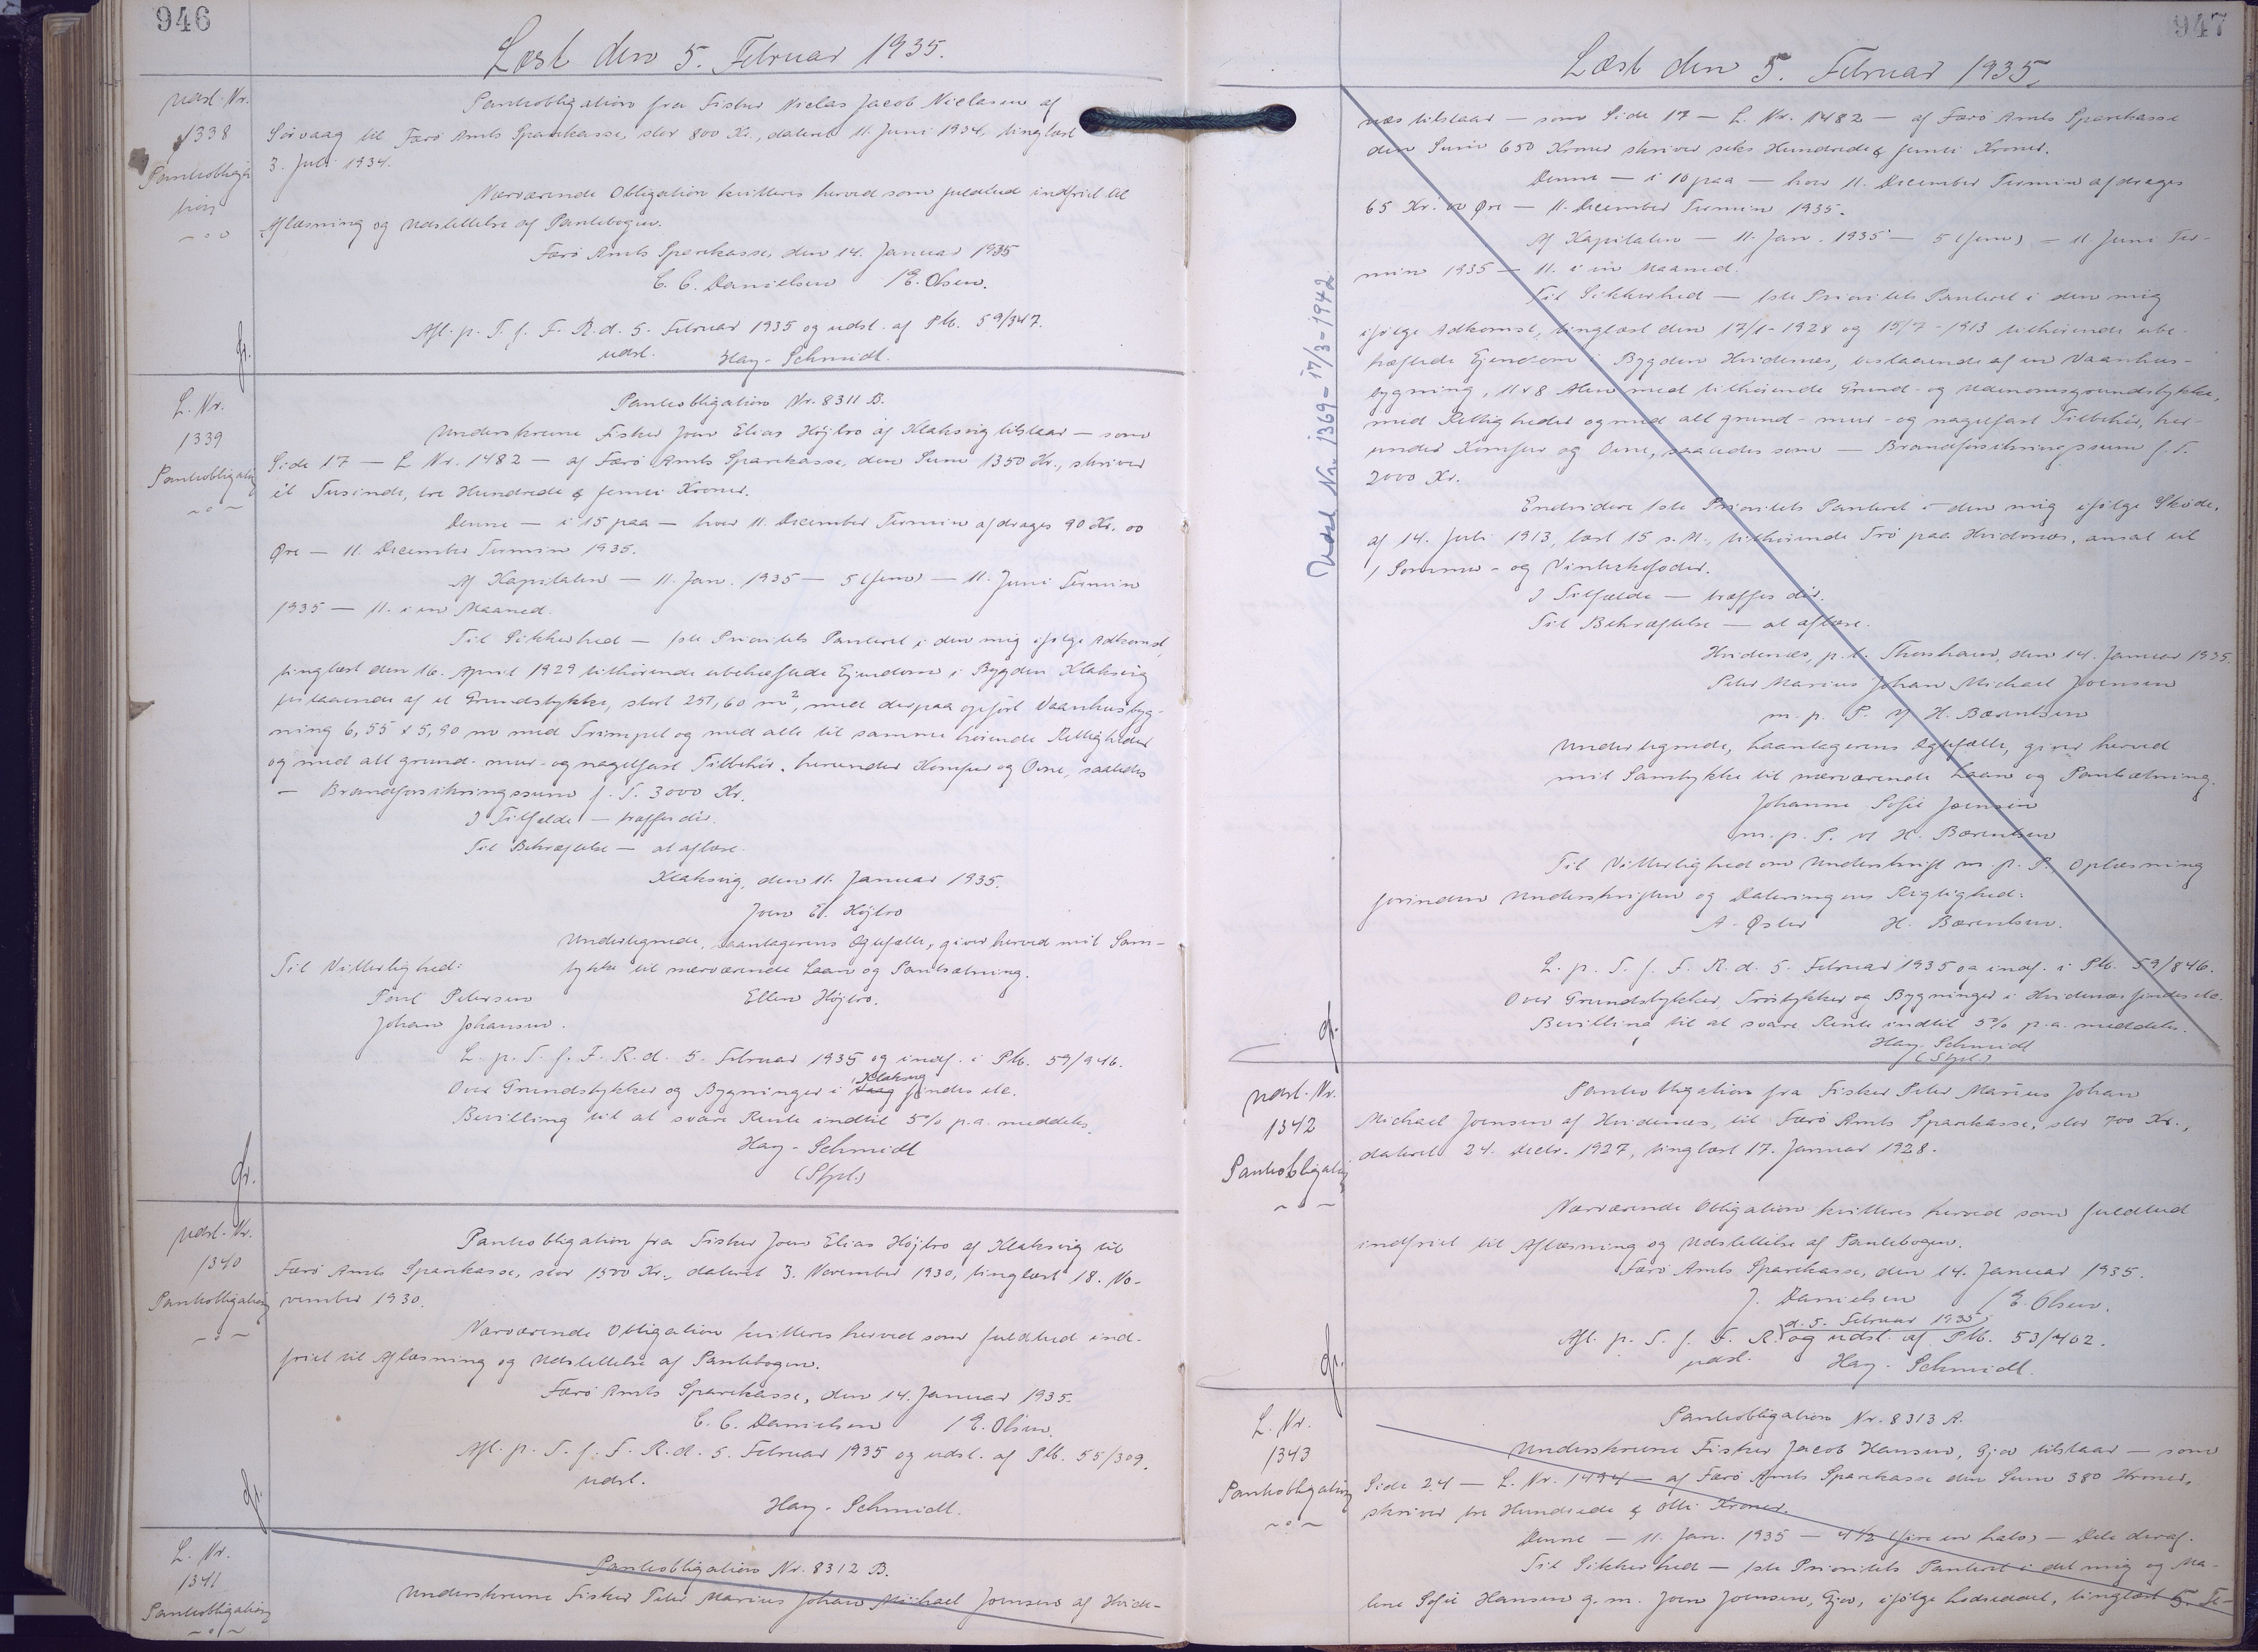 946
Læst den 5. Februar 1935.
Udsl. Nr.
1338
Pantobliga-
tion
Pantobligation fra Fisker Niclas Jacob Niclasen af
Sörvaag til Færö Amts Sparekasse, stor 800 Kr., dateret 11. Juni 1934, tinglæst
3. Juli 1934.
Nærværende Obligation kvitteres herved som fuldtud indfriet til
Aflæsning og Udslettelse af Pantebogen.
Færö Amts Sparekasse, den 14. Januar 1935
C. C. Danielsen /E. Olsen.
Afl. p. T. f. F. R. d. 5. Februar 1935 og udsl. af Ptb. 59/347.
udsl. Hay-Schmidt.
L. Nr.
1339
Pantobligation
Pantobligation Nr. 8311 B.
Underskrevne Fisker Joen Elias Höjbro af Klaksvig tilstaar — som
Side 17 — L. Nr. 1482 — af Færö Amts Sparekasse, den Sum 1350 Kr., skriver
et Tusinde, tre Hundrede & femti Kroner.
Denne — i 15 paa — hver 11. December Termin afdrages 90 Kr. 00
Øre — 11. December Termin 1935.
Af Kapitalen — 11. Jan. 1935 — 5 (fem) — 11. Juni Termin
1935 — 11. i en Maaned.
Til Sikkerhed — 1ste Prioritets Panteret i den mig ifölge Adkomst,
tinglæst den 16. April 1929 tilhörende ubehæftede Ejendom i Bygden Klaksvig
bestaaende af et Grundstykke, stort 251,60 m², med derpaa opfört Vaanhusbyg-
ning 6,55 x 5,90 m med Trimpel og med alle til samme hörende Rettigheder
og med alt grund- mur- og nagelfast Tilbehör, herunder Komfur og Ovne, saaledes
— Brandforsikringssum f. T. 3000 Kr.
I Tilfælde — træffes dér.
Til Bekræftelse — at aflæse.
Klaksvig, den 11. Januar 1935.
Joen E. Höjbro
Undertegnede, Laantagerens Ægtefælle, giver herved mit Sam-
Til Vitterlighed: tykke til nærværende Laan og Pantsætning.
Poul Petersen Ellen Höjbro.
Johan Johansen.
L. p. T. f. F. R. d. 5. Februar 1935 og indf. i Ptb. 59/946.
Over Grundstykker og Bygninger i Klaksvig findes ete.
Bevilling til at svare Rente indtil 5% p.a. meddeles.
Hay-Schmidt
(Stpl.)
Udsl. Nr.
1340
Pantobligation
Pantobligation fra Fisker Joen Elias Höjbro af Klaksvig til
Færö Amts Sparekasse, stor 1500 Kr., dateret 3. November 1930, tinglæst 18. No-
vember 1930.
Nærværende Obligation kvitteres herved som fuldtud ind-
friet til Aflæsning og Udslettelse af Pantebogen.
Færö Amts Sparekasse, den 14. Januar 1935.
C. C. Danielsen /E. Olsen.
Afl. p. T. f. F. R. d. 5. Februar 1935 og udsl. af Ptb. 55/309.
udsl.
Hay-Schmidt.
L. Nr.
1341
Pantobligation
Pantobligation Nr. 8312 B.
Underskrevne Fisker Peter Marius Johan Michael Joensen af Hvide-
947
Læst den 5. Februar 1935.
Udsl. Nr. 1369 - 17/3-1942
næs tilstaar — som Side 17 — L. Nr. 1482 — af Færö Amts Sparekasse
den Sum 650 Kroner skriver seks Hundrede & femti Kroner.
Denne — i 10 paa — hver 11. December Termin afdrages
65 Kr. 00 Øre — 11. December Termin 1935.
Af Kapitalen — 11. Jan. 1935 — 5 (fem) — 11. Juni Ter-
min 1935 — 11. i en Maaned.
Til Sikkerhed — 1ste Prioritets Panteret i den mig
ifölge Adkomst, tinglæst den 17/1-1928 og 15/7-1913 tilhörende ube-
hæftede Ejendom i Bygden Hvidenæs, bestaaende af en Vaanhus-
bygning, 11 x 8 Alen med tilhörende Grund- og Udenomsgrundstykke,
med Rettigheder og med alt grund- mur- og nagelfast Tilbehör, her-
under Komfur og Ovne, saaledes som — Brandforsikringssum f. T.
2000 Kr.
Endvidere 1ste Prioritets Panteret i den mig ifölge Sköde,
af 14. Juli 1913, læst 15 s. M., tilhörende Trö paa Hvidenæs, ansat til
1 Sommer- og Vinterkofoder.
I Tilfælde — træffes dér.
Til Bekræftelse — at aflæse.
Hvidenæs, p.t. Thorshavn, den 14. Januar 1935.
Peter Marius Johan Michael Joensen
m. p. P. v/ H. Bærentsen
Undertegnede, Laantagerens Ægtefælle, giver herved
mit Samtykke til nærværende Laan og Pantsætning.
Johanne Sofie Joensen
m. p. P. v/ H. Bærentsen
Til Vitterlighed om Underskrift m. p. P., Oplæsning
forinden Underskriften og Dateringens Rigtighed:
A. Øster H. Bærentsen.
L. p. T. f. F. R. d. 5. Februar 1935 og indf. i Ptb. 59/846.
Over Grundstykker, Tröstykker og Bygninger i Hvidenæs findes ete.
Bevilling til at svare Rente indtil 5% p.a. meddeles.
Hay-Schmidt
(Stpl.)
Udsl. Nr.
1342
Pantobligation
Pantobligation fra Fisker Peter Marius Johan
Michael Joensen af Hvidenæs, til Færö Amts Sparekasse, stor 700 Kr.,
dateret 24. Decbr. 1927, tinglæst 17. Januar 1928.
Nærværende Obligation kvitteres herved som fuldtud
indfriet til Aflæsning og Udslettelse af Pantebogen.
Færö Amts Sparekasse, den 14. Januar 1935.
J. Danielsen /E. Olsen.
d. 5. Februar 1935
Afl. p. T. f. F. R. og udsl. af Ptb. 53/402.
udsl. Hay-Schmidt.
L. Nr.
1343
Pantobligation
Pantobligation Nr. 8313 A.
Underskrevne Fisker Jacob Hansen, Gjov tilstaar — som
Side 24 — L. Nr. 1494 — af Færö Amts Sparekasse den Sum 380 Kroner,
skriver tre Hundrede & otti Kroner.
Denne — 11. Jan. 1935 — 4½ (fire en halv) — Dele deraf.
Til Sikkerhed — 1ste Prioritets Panteret i det mig og Ma-
lene Sofie Hansen g. m. Joen Joensen, Gjov, ifölge Lodseddel, tinglæst 5. Fe-